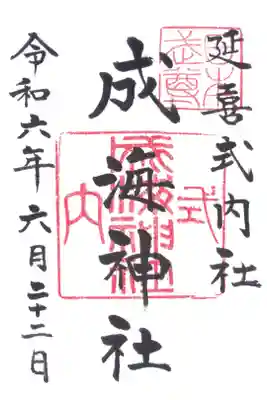 延喜式内社
成海神社
令和六年六月二十二日
式内
成海神社